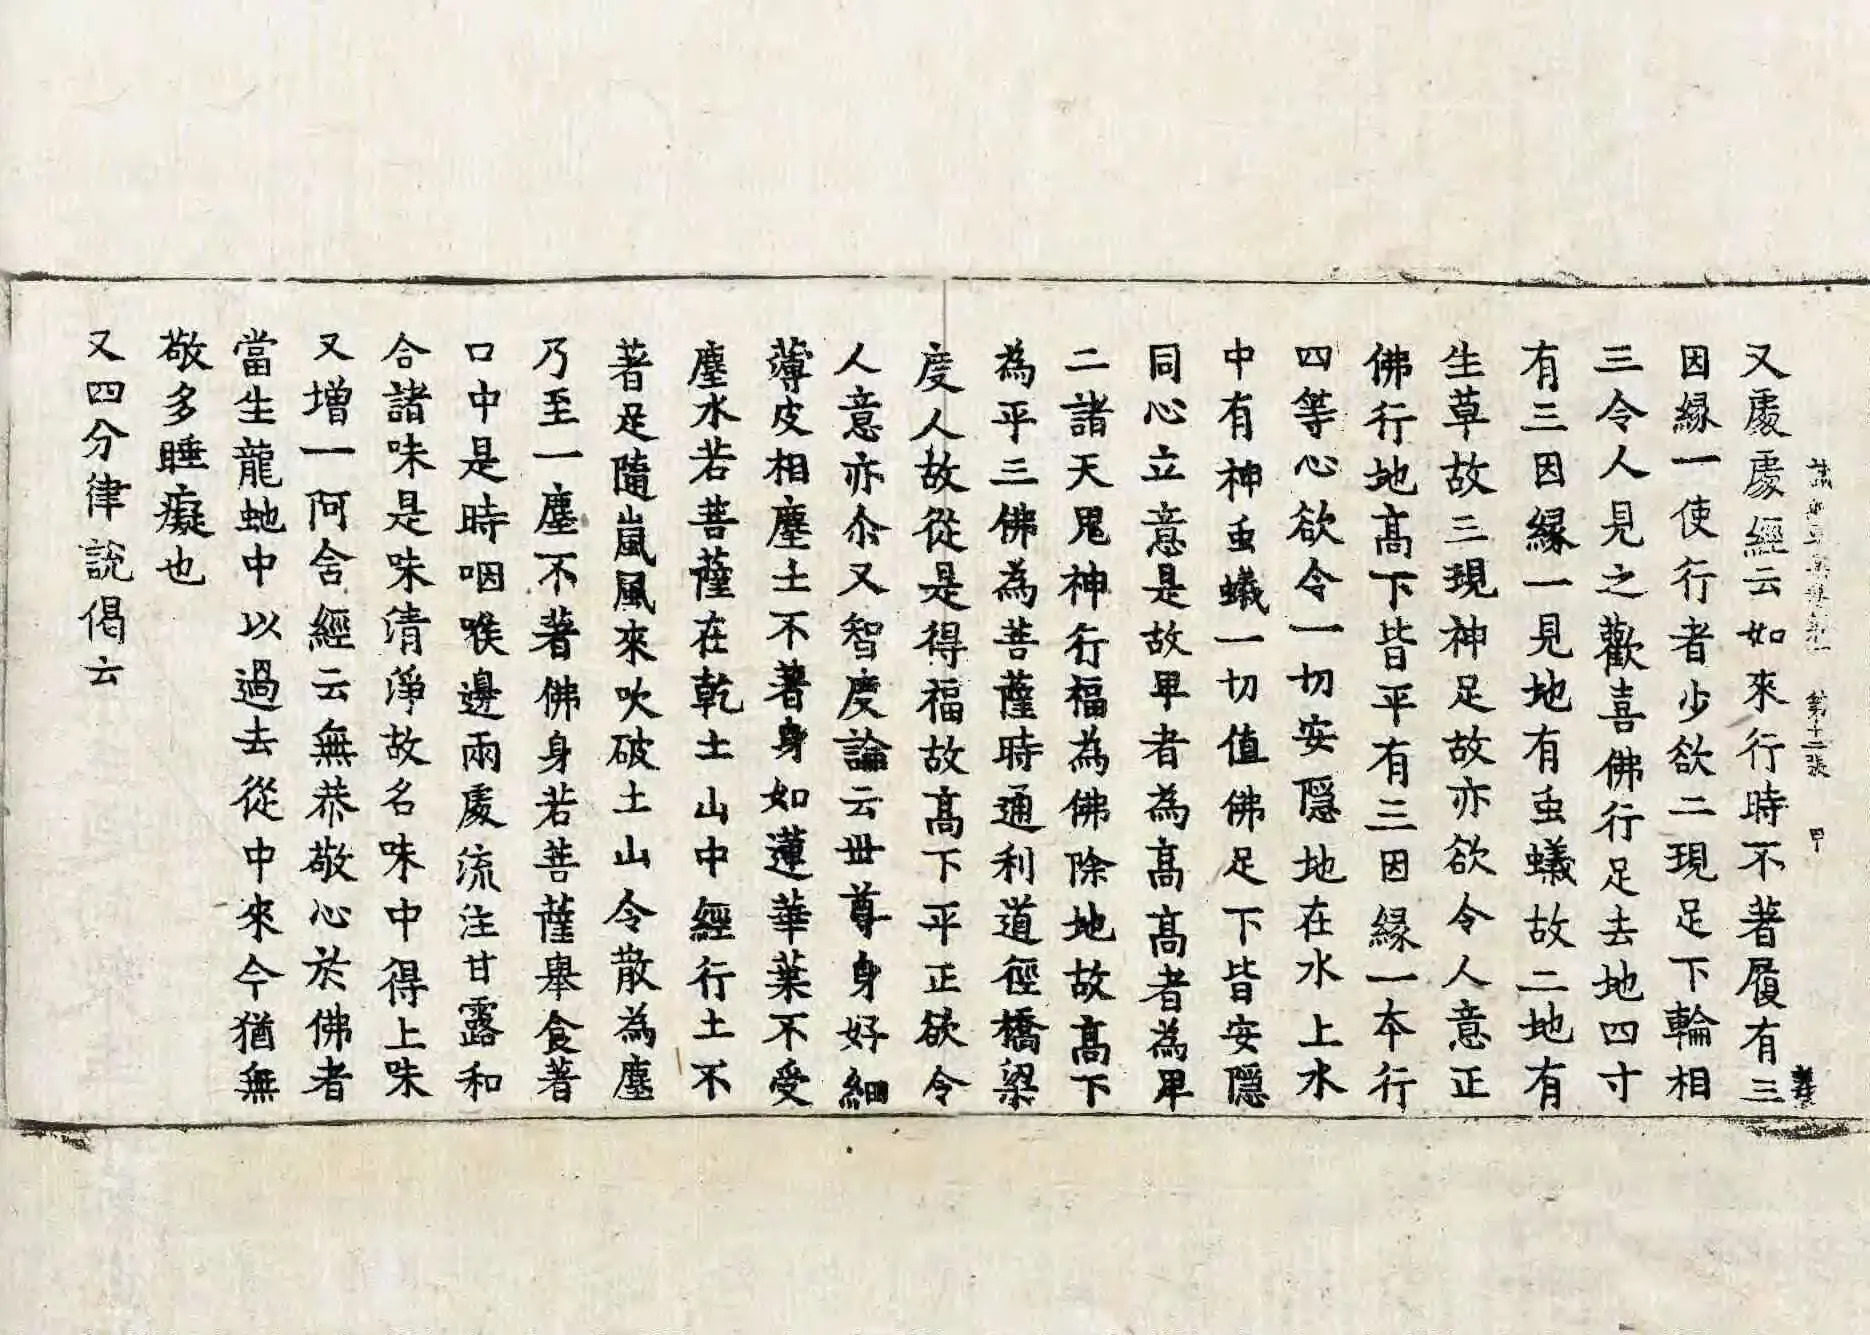 第十二張 甲
又處處經云如來行時不著履有三
因緣一使行者少欲二現足下輪相
三令人見之歡喜佛行足去地四寸
有三因緣一見地有虫蟻故二地有
生草故三現神足故亦欲令人意正
佛行地高下皆平有三因緣一本行
四等心欲令一切安隱地在水上水
中有神虫蟻一切值佛足下皆安隱
同心立意是故卑者為高高者為卑
二諸天鬼神行福為佛除地故高下
為平三佛為菩薩時通利道徑橋梁
度人故從是得福故高下平正欲令
人意亦尒又智度論云世尊身好細
薄皮相塵土不著身如蓮華葉不受
塵水若菩薩在乾土山中經行土不
著足隨嵐風來吹破土山令散為塵
乃至一塵不著佛身若菩薩舉食著
口中是時咽喉邊兩處流注甘露和
合諸味是味清淨故名味中得上味
又增一阿含經云無恭敬心於佛者
當生龍虵中以過去從中來今猶無
敬多睡癡也
又四分律說偈云